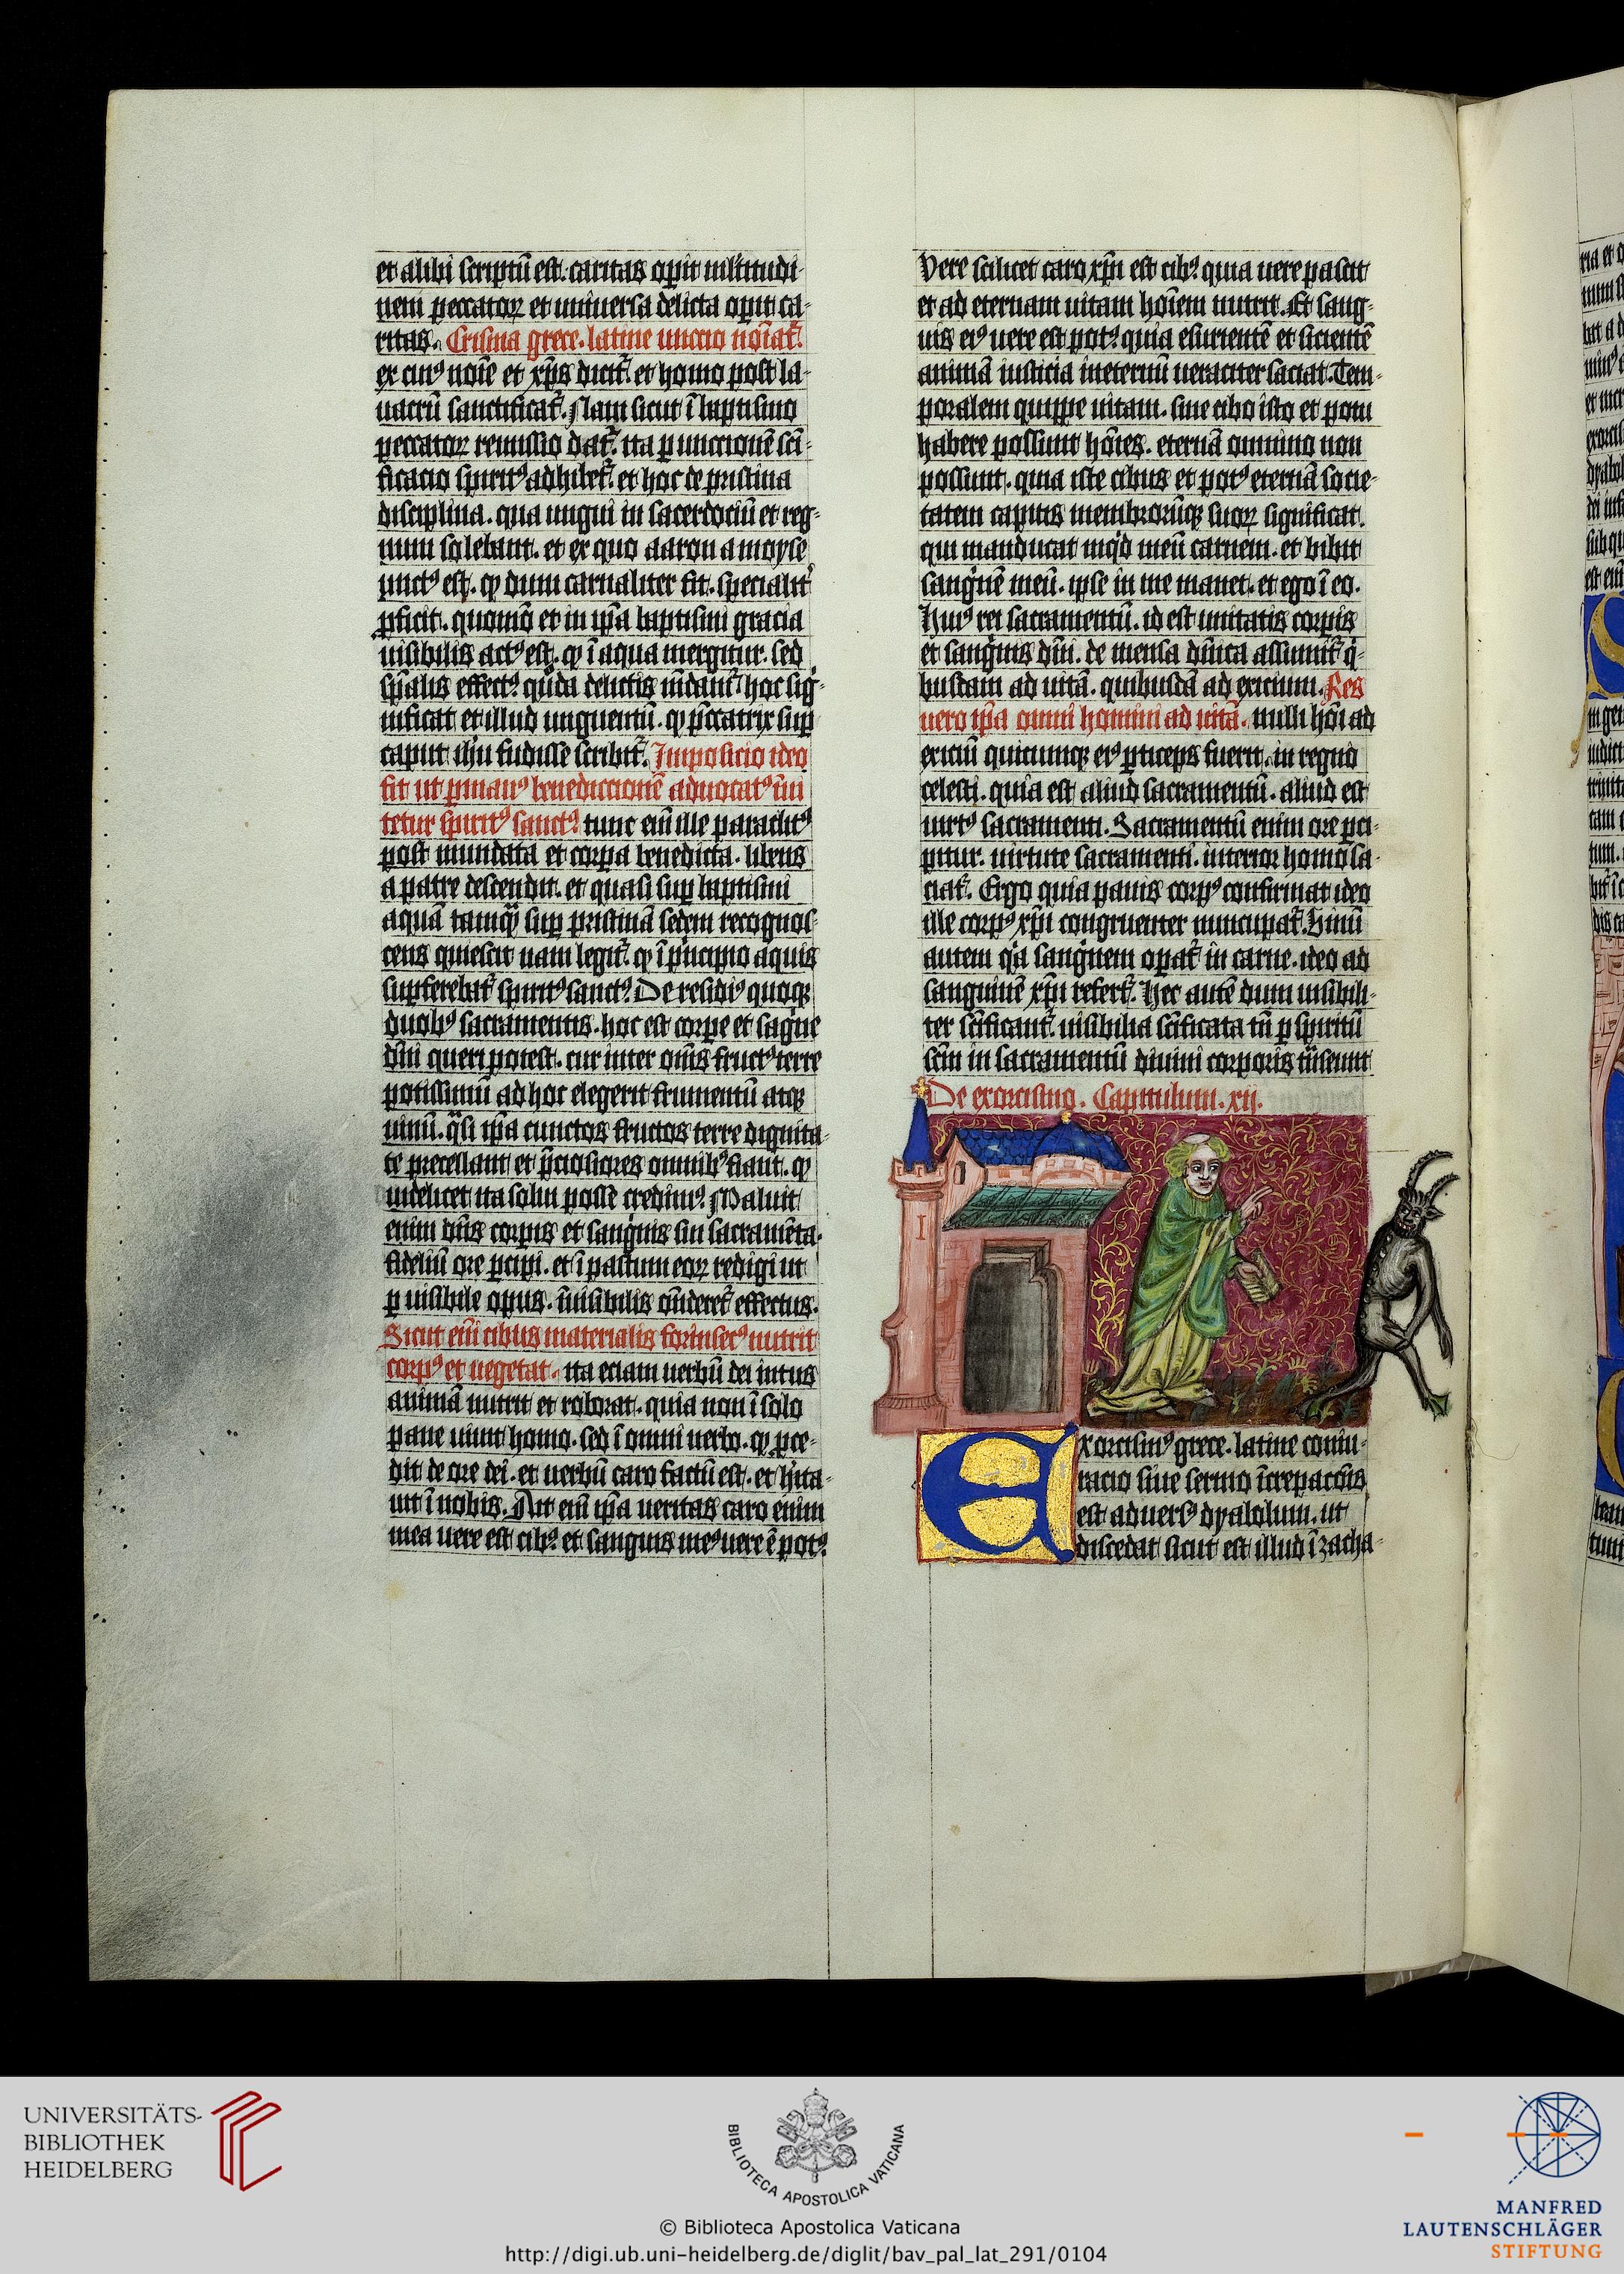 et alibi scriptū est. caritas opit ml'titudi-
nem peccatoꝝ et universa delicta opit ca-
ritas. Crisma grece. latine unctio noīat᷑.
ex cui᷒ noīe et xp̄s dicit᷑. et homo post la-
uacrū sanctificat᷑. Nam sicut ī baptismo
peccatoꝝ remissio dat᷑. ita p unctionē sc̄i-
ficacio spirit᷒ adhibet᷑. et hoc de pristina
disciplina. qua ungui in sacerdociū et reg-
num solebant. et ex quo aaron a moyse
unct᷒ est. ꝙ dum carnaliter fit. specialit᷑
ꝓficit. quomō et in ip̄a baptismi gracia
uisibilis act᷒ est. ꝙ ī aqua mergitur. sed
sp̄alis effect᷒ qui a delictis mūdant᷑. hoc sig-
nificat et illud unguentū. ꝙ peccatrix suꝑ
caput ih̄u fudisse scribit᷑. Imposicio ideo
fit ut ꝑ man᷒ benedictionē aduocat᷒ īui
tetur spirit᷒ sanct᷒. tunc em̄ ille paraclit᷒
post mundata et corꝑa benedicta. libens
a patre descendit. et quasi suꝑ baptismi
aquā tamq̄ suꝑ pristinā sedem recognos-
cens quiescit nam legit᷑. ꝙ ī principio aquis
suꝑferebat᷑ spirit᷒ sanct᷒. De residuis quoqꝫ
duob᷒ sacramentis. hoc est corꝑe et sāgine
dn̄i queri potest. cur inter om̄s fruct᷒ terre
potissimū ad hoc elegerit frumentū atqꝫ
uinū. q̄si ip̄a cunctos fructos terre dignita-
te precellant et p̄ciosiores omnib᷒ fiant. ꝙ
uidelicet ita solū posse credim᷒. Maluit
enim dn̄s corꝑis et sanguis sui sacramēta
fideliū ore ꝑcipi. et ī pastum eoꝝ redigi ut
ꝑ uisibile opus. īuisibilis ōnderet᷑ effectus.
Sicut em̄ cibus materialis forinsec᷒ nutrit
corp᷒ et uegetat. ita eciam uerbū dei intus
animā nutrit et roborat. quia non ī solo
pane uiuit homo. sed ī omni uerbo. ꝙ ꝓce-
dit de ore dei. et uerbū caro factū est. et h'ita-
uit ī nobis. Ait em̄ ip̄a ueritas caro enim
mea uere est cib᷒ et sanguis me᷒ uere ē pot᷒
Vere scilicet caro xp̄i est cib᷒ quia uere pascit
et ad eternam uitam hoīem nutrit. Et sang-
uis ei᷒ uere est pot᷒ quia esurientē et sicientē
animā iusticia ineternū ueraciter saciat. Tem-
poralem quippe uitam. sine cibo isto et potu
habere possunt hōies. eternā omnino non
possunt. quia iste cibus et pot᷒ eternā socie-
tatem capitis membrorūqꝫ suoꝝ significat.
qui manducat inq̄d meū carnem. et bibit
sangnē meū. ipse in me manet. et ego ī eo.
Hui᷒ rei sacramentū. id est unitatis corꝑis
et sangnis dn̄i. de mensa dn̄ica assumit᷑ q-
busdam ad uitā. quibusdā ad exicium. Res
uero ip̄a omni homini ad uitā. nulli hōi ad
exiciū quicumqꝫ ei᷒ ꝑticeps fuerit. in regno
celesti. quia est aliud sacramentū. aliud est
uirt᷒ sacramenti. Sacramentū enim ore ꝑci-
pitur. uirtute sacramenti. interior homo sa-
ciat᷑. Ergo quia panis corp᷒ confirmat ideo
ille corp᷒ xp̄i congruenter nuncupat᷑. Vinū
autem q̄a sangnem oꝑat᷑ in carne. ideo ad
sanguinē xp̄i refert᷑. Hec autē dum uisibili-
ter sc̄ificant᷑. uisibilia sc̄ificata tn̄ ꝑ spiritū
sc̄m in sacramentū diuini corꝑoris tn̄seunt
De exorcismo. Capitulum. xij.
Exorcism᷒ grece. latine coniu-
racio siue sermo īcrepacōnis
est aduers᷒ dyabolum. ut
discedat sicut est illud ī zacha-
UNIVERSITÄTS-
BIBLIOTHEK
HEIDELBERG
BIBLIOTECA APOSTOLICA VATICANA
© Biblioteca Apostolica Vaticana
http://digi.ub.uni-heidelberg.de/diglit/bav_pal_lat_291/0104
MANFRED
LAUTENSCHLÄGER
STIFTUNG